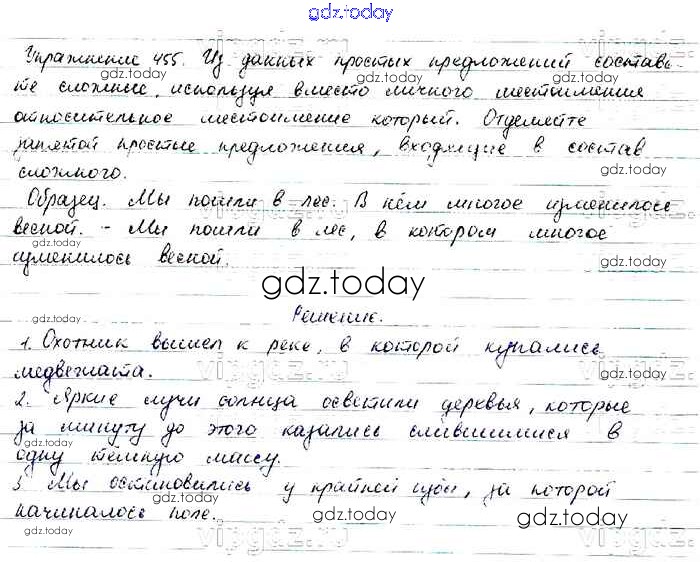 gdz.today
Упражнение 455. Из данных простых предложений составь-
те сложные, используя вместо личного местоимения
относительное местоимение который. Отделяйте
запятой простые предложения, входящие в состав
сложного.
Образец. Мы пошли в лес. В нём многое изменилось
весной. - Мы пошли в лес, в котором многое
изменилось весной.
gdz.today
Решение.
1. Охотник вышел к реке, в которой купались
медвежата.
2. Яркие лучи солнца осветили деревья, которые
за минуту до этого казались слившимися в
одну тёмную массу.
3. Мы остановились у крайней избы, за которой
начиналось поле.
gdz.today
gdz.today